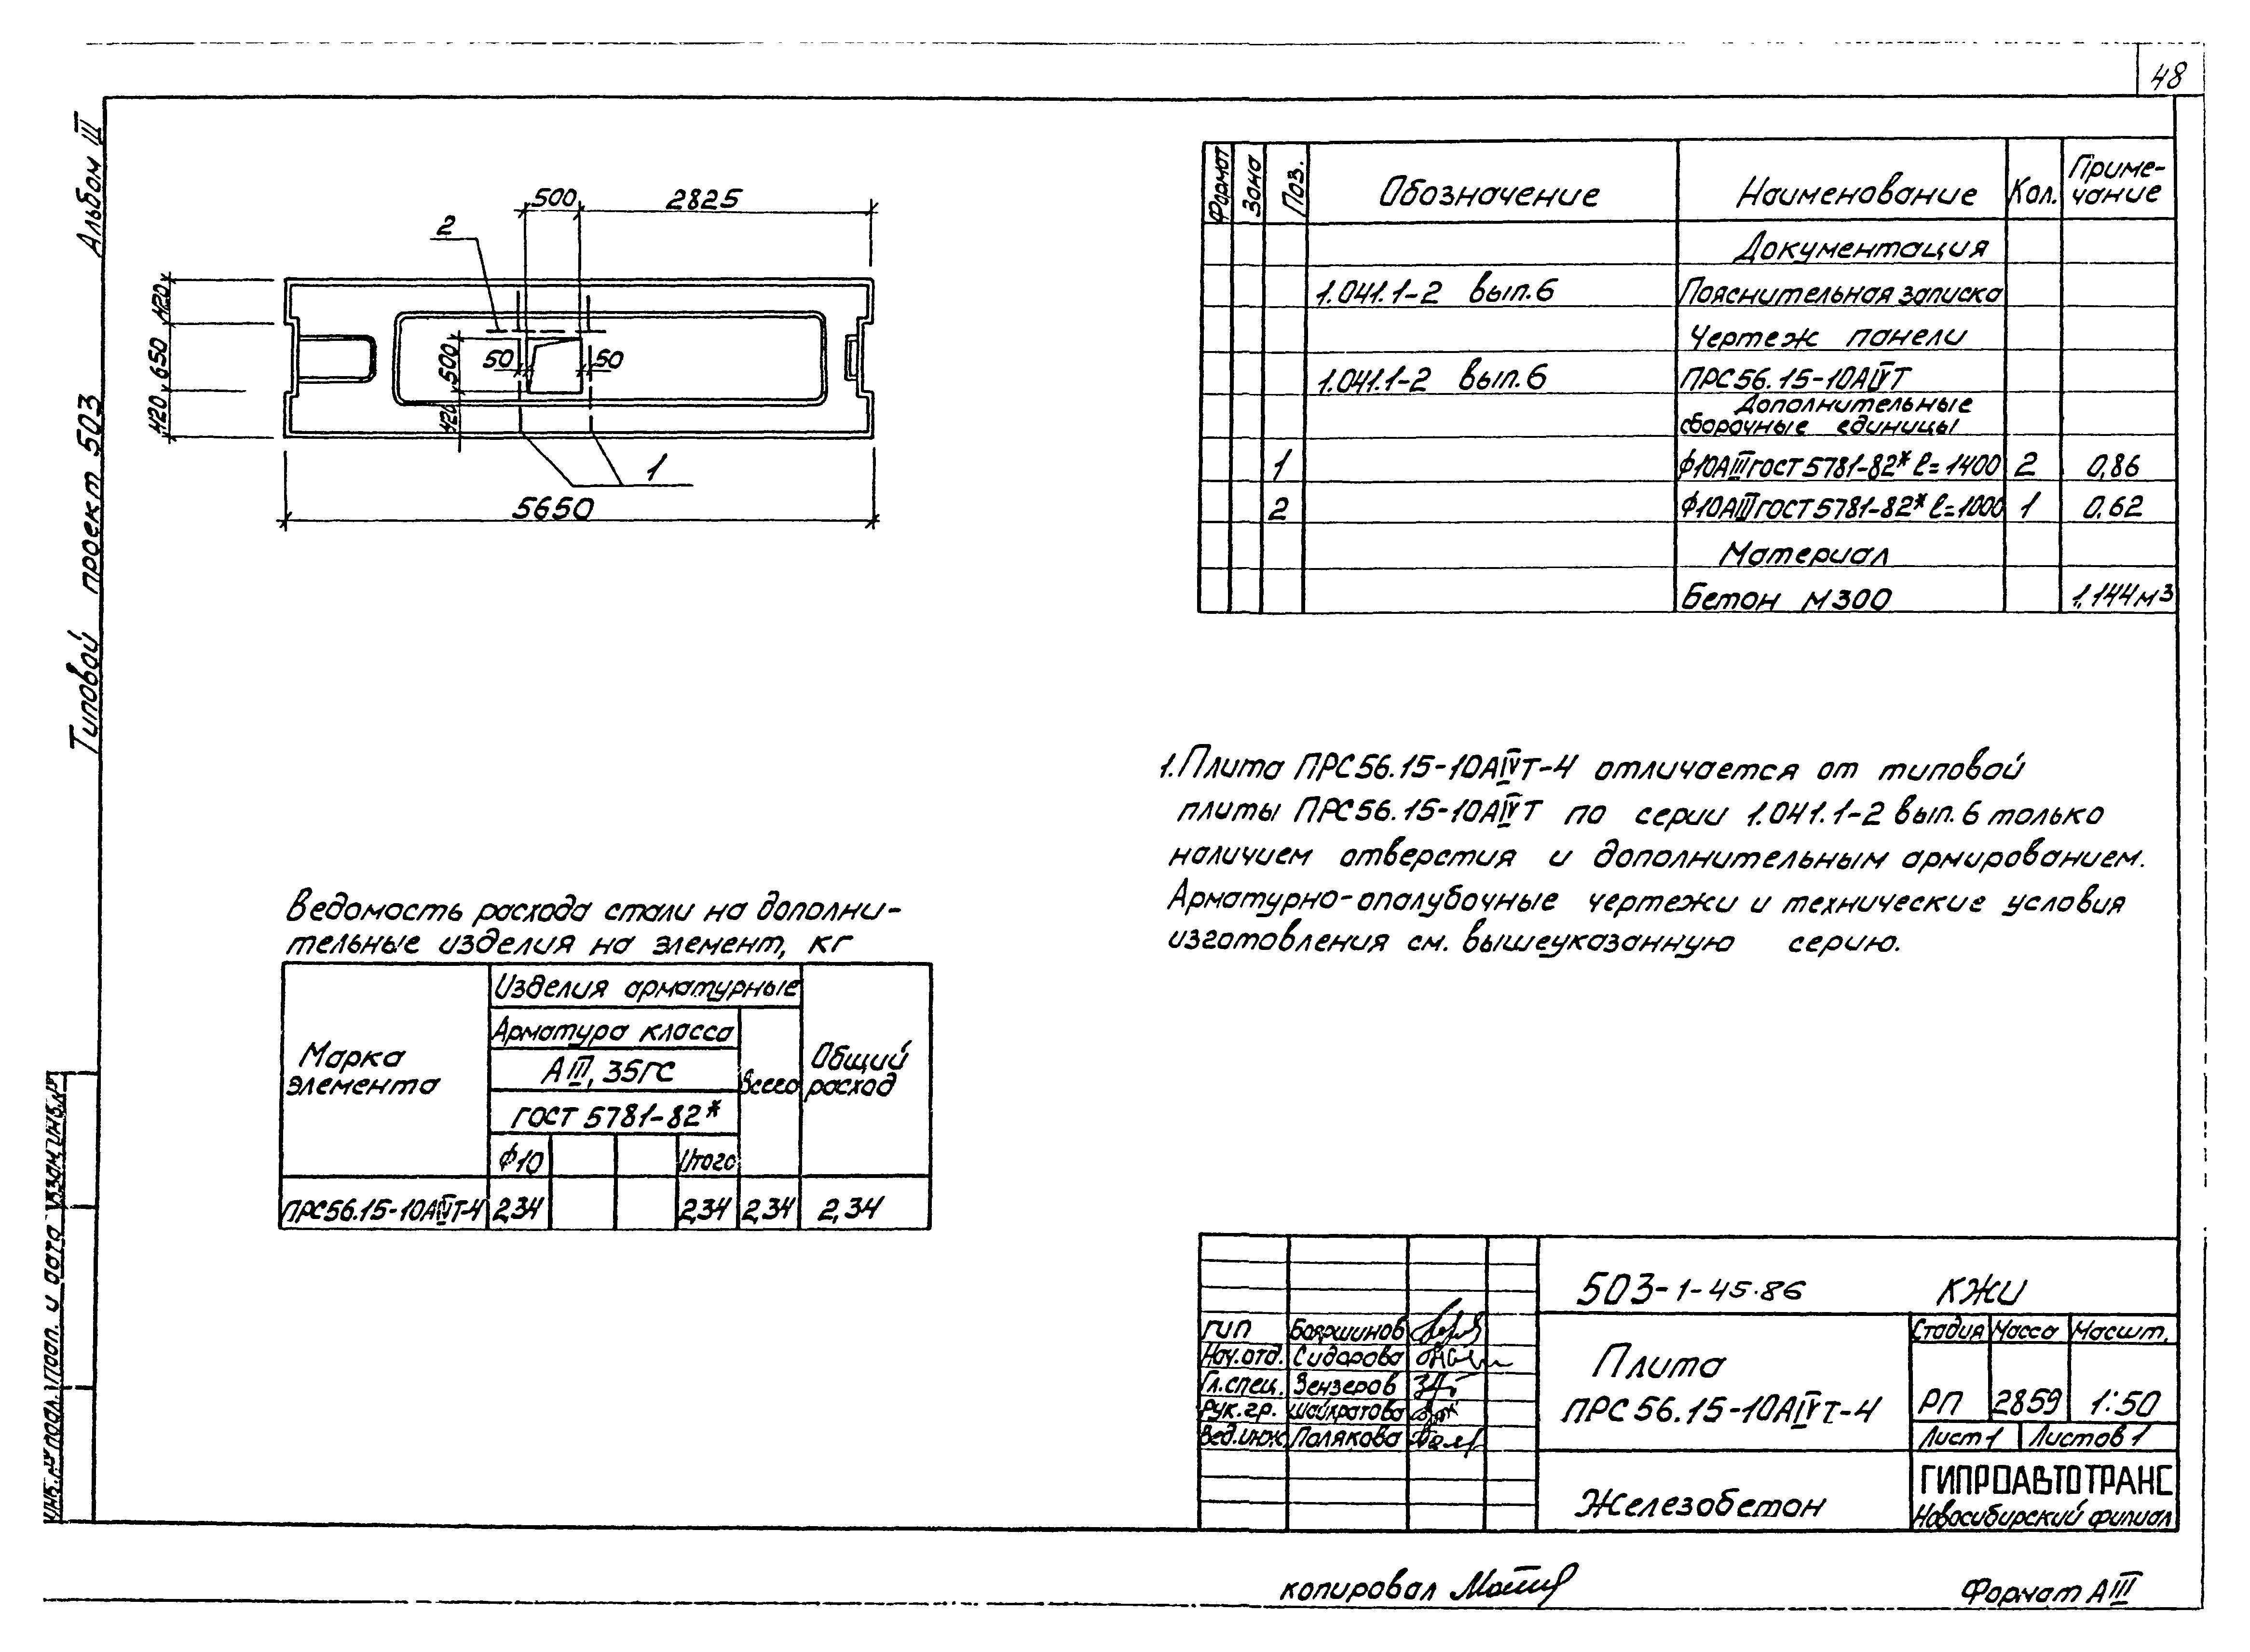 48
Альбом III
Типовой проект 503
500 2825
2
420 650 420
50 500 50
420
1
5650
Формат Зона Поз. Обозначение Наименование Кол. Приме-
чание
Документация
1.041.1-2 вып.6 Пояснительная записка
Чертеж панели
1.041.1-2 вып.6 ПРС56.15-10АIVТ
Дополнительные
сборочные единицы
1 ф10АIII ГОСТ 5781-82* ℓ=1400 2 0,86
2 ф10АIII ГОСТ 5781-82* ℓ=1000 1 0.62
Материал
Бетон М300 1,144м³
1. Плита ПРС56.15-10АIVТ-4 отличается от типовой
плиты ПРС56.15-10АIVТ по серии 1.041.1-2 вып.6 только
наличием отверстия и дополнительным армированием.
Арматурно-опалубочные чертежи и технические условия
изготовления см. вышеуказанную серию.
Ведомость расхода стали на дополни-
тельные изделия на элемент, кг
Марка
элемента
Изделия арматурные
Арматура класса
АIII, 35ГС
ГОСТ 5781-82*
ф10 Итого
Всего
Общий
расход
ПРС56.15-10АIVТ-4 2,34 2,34 2,34 2,34
503-1-45.86 КЖИ
ГИП Бояршинов
Нач.отд. Сидорова
Гл.спец. Зензеров
Рук.гр.
Вед.инж. Полякова
Плита
ПРС56.15-10АIVТ-4
Стадия Масса Масшт.
РП 2859 1:50
Лист 1 Листов 1
Железобетон
ГИПРОАВТОТРАНС
Новосибирский филиал
Инв.№ подл. Подп. и дата Взам.инв.№
копировал
Формат АIII